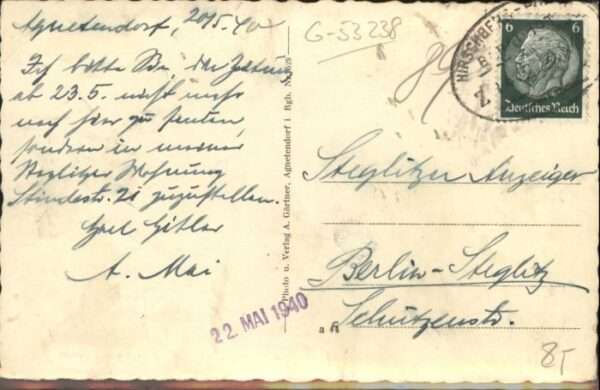 Agnetendorf, 20/5.40
Ich bitte Sie die Zeitung
ab 23.5. nicht mehr
nach hier zu senden,
sondern in meiner
Steglitzer Wohnung
Stindestr. 21 zuzustellen.
Heil Hitler
A. Mai
22. MAI 1940
Photo u. Verlag A. Gärtner, Agnetendorf i. Rgb.
G-53238
HIRSCHBERG
6 6
Deutsches Reich
Steglitzer Anzeiger
Berlin-Steglitz
Schützenstr.